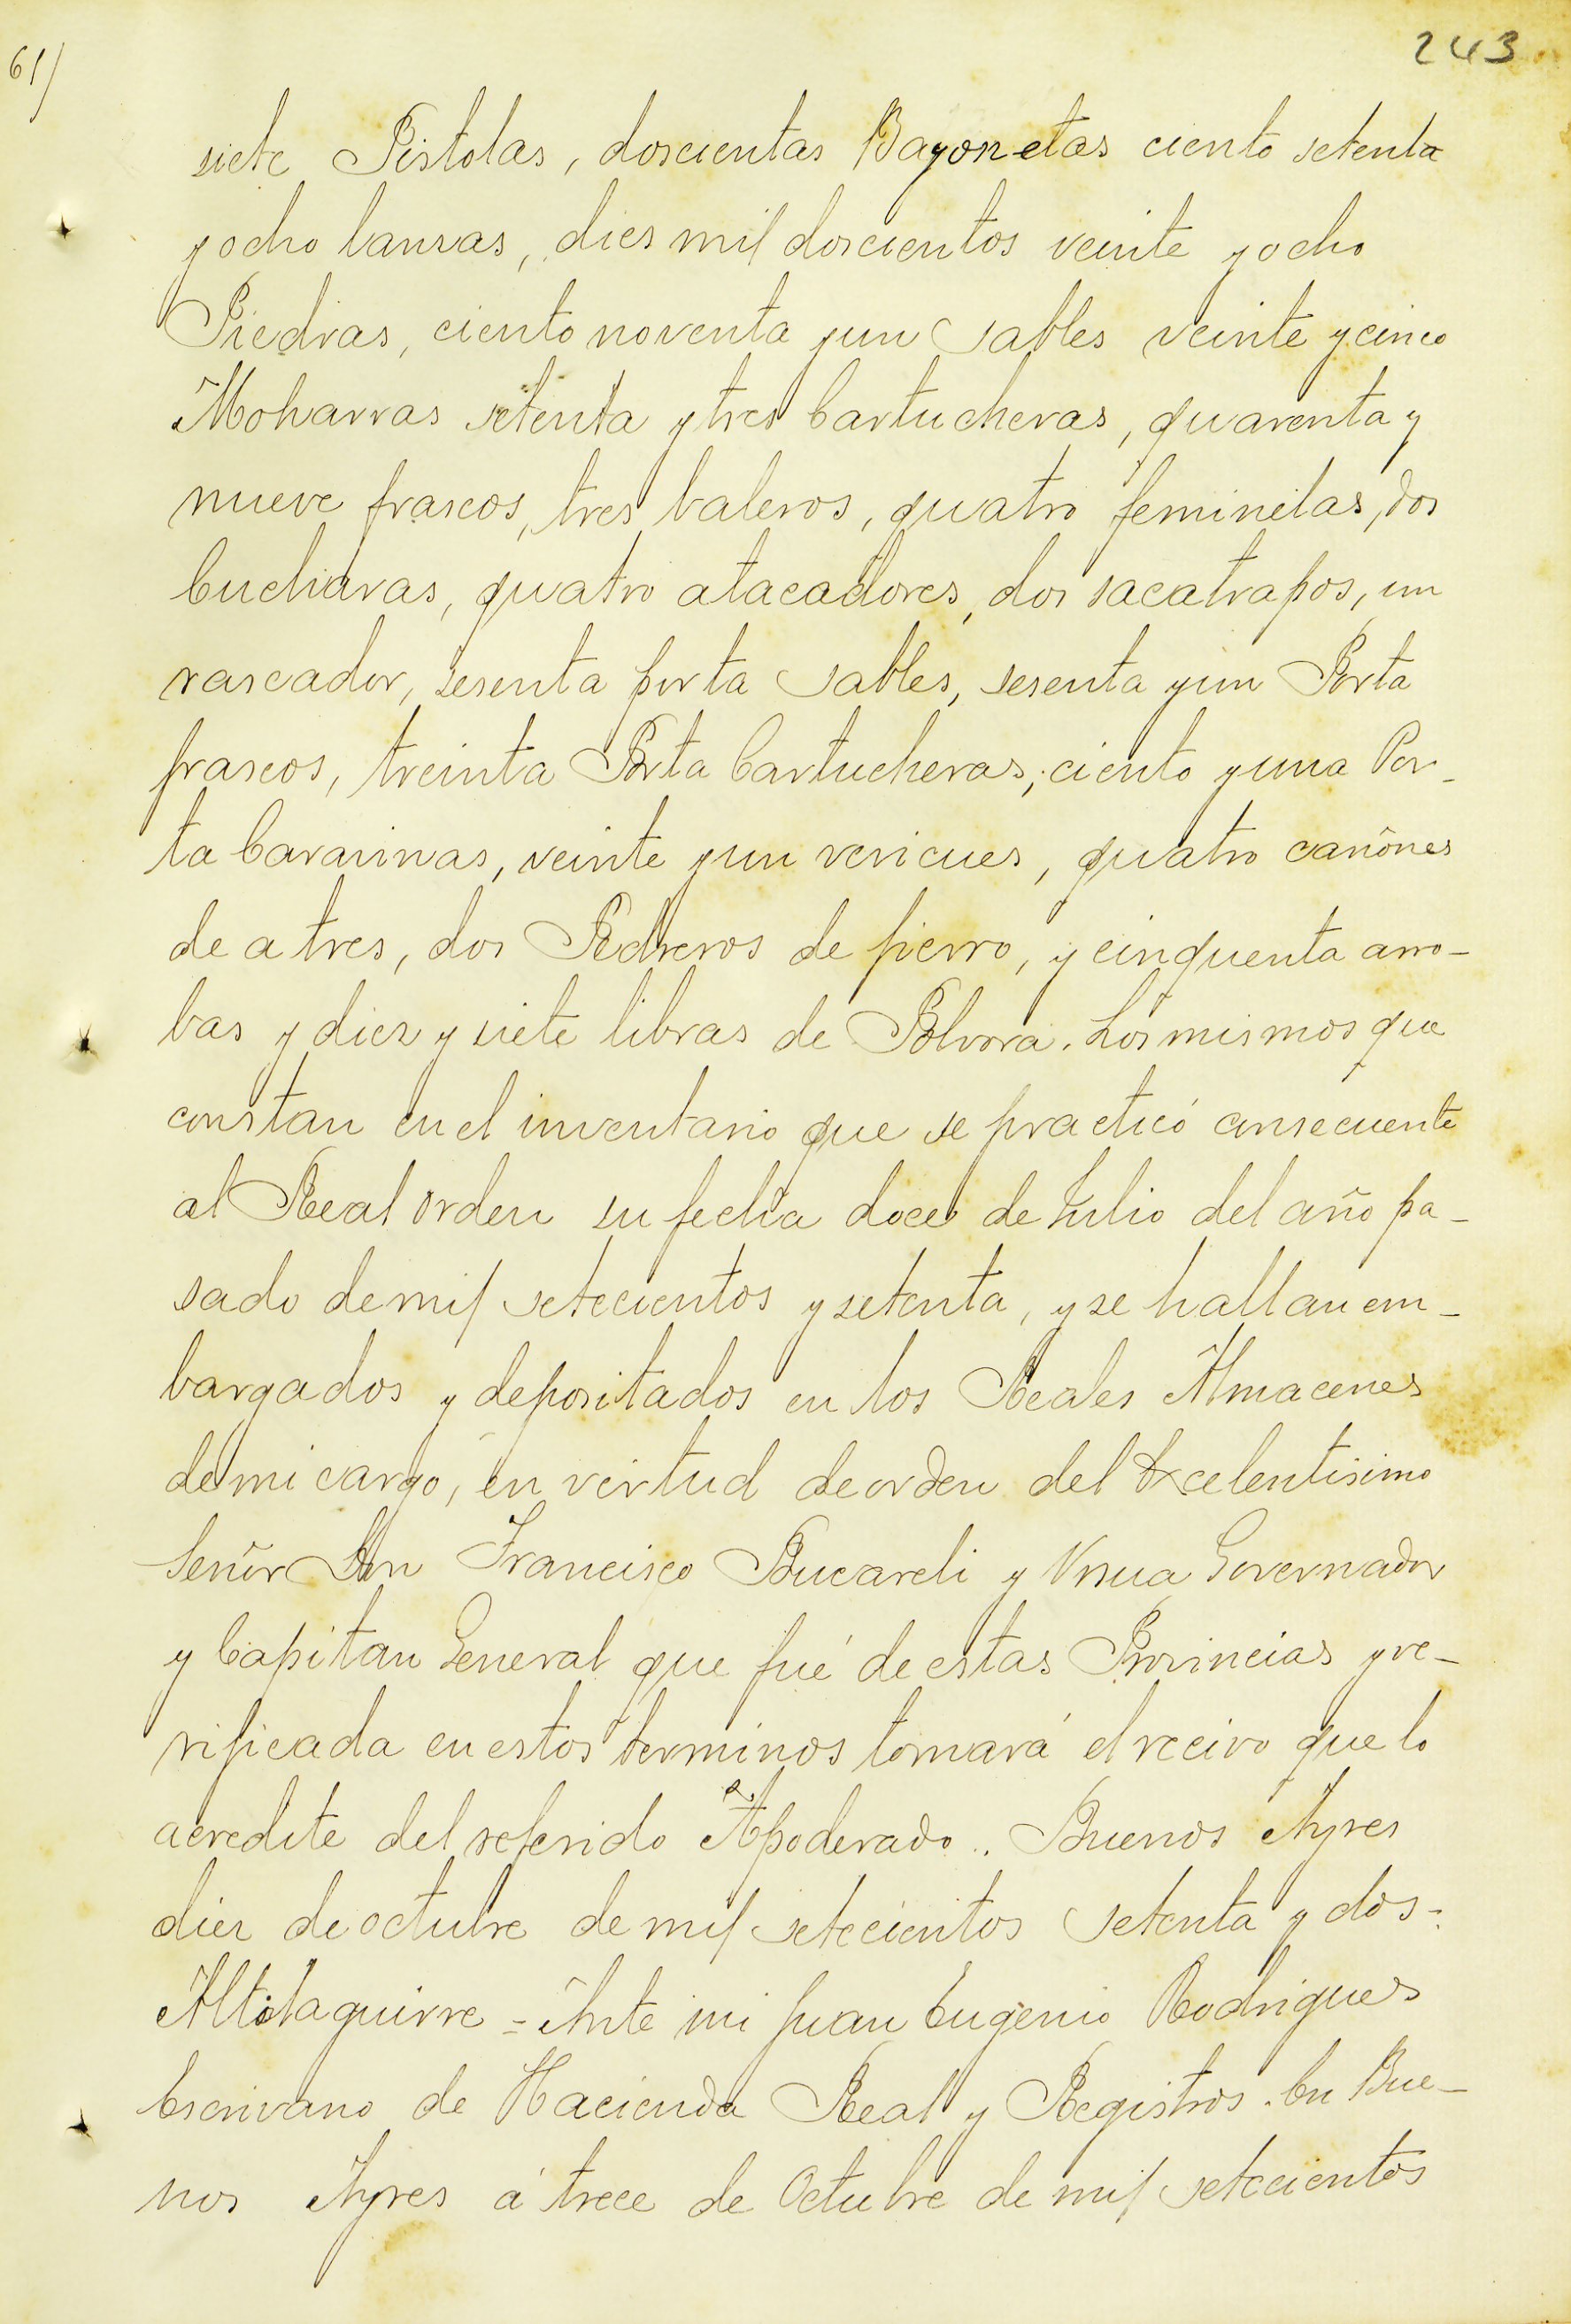 61/
243
siete Pistolas, doscientas Bayonetas ciento setenta
y ocho lansas, dies mil doscientos veinte y ocho
Piedras, ciento noventa y un sables veinte y cinco
Moharras setenta y tres Cartucheras, quarenta y
nueve frascos, tres baleros, quatro feminelas, dos
Cucharas, quatro atacadores, dos sacatrapos, un
rascador, sesenta porta sables, sesenta y un Porta
frascos, treinta Porta Cartucheras, ciento y una Por_
ta Caravinas, veinte y un vericues, quatro cañones
de a tres, dos Pedreros de fierro, y cinquenta arro_
bas y diez y siete libras de Polvora. Los mismos que
constan en el inventario que se practicó consecuente
al Real orden su fecha doce de Julio del año pa_
sado de mil setecientos y setenta, y se hallan em_
bargados y depositados en los Reales Almacenes
de mi cargo, en virtud de orden del Excelentisimo
Señor Don Francisco Bucareli y Ursua Governador
y Capitan General que fué de estas Provincias y ve_
rificada en estos terminos tomará el recivo que lo
acredite del referido Apoderado.. Buenos Ayres
diez de octubre de mil setecientos setenta y dos =
Altolaguirre = Ante mi Juan Eugenio Rodrigues
Escrivano de Hacienda Real y Registros. En Bue_
nos Ayres á trece de Octubre de mil setecientos